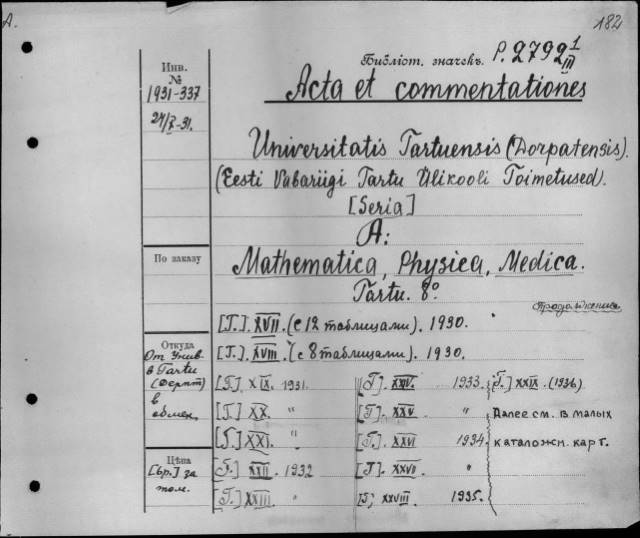 А.
182
Инв.
№
1931-337
24/X-31.
Библіот. значекъ. P. 2792 1/III
Acta et commentationes
Universitatis Tartuensis (Dorpatensis).
(Eesti Vabariigi Tartu Ülikooli Toimetused).
[Seria]
A:
По заказу
Mathematica, Physica, Medica.
Tartu. 8°
Продолжение
[Т.]. XVII. (с 12 таблицами). 1930.
Откуда
От Унив.
в Tartu
(Дерпт)
в
обмен.
[Т.]. XVIII. (с 8 таблицами). 1930.
[Т.] XIX. 1931. [Т]. XXIV. 1933. [Т.] XXIX. (1936)
[Т.] XX. " [Т]. XXV. " Далее см. в малых
[Т.] XXI. " [Т]. XXVI 1934. каталожн. карт.
Цѣна
[бр.] за
том.
[Т.] XXII. 1932 [Т]. XXVII. "
[Т.] XXIII. " [Т]. XXVIII. 1935.